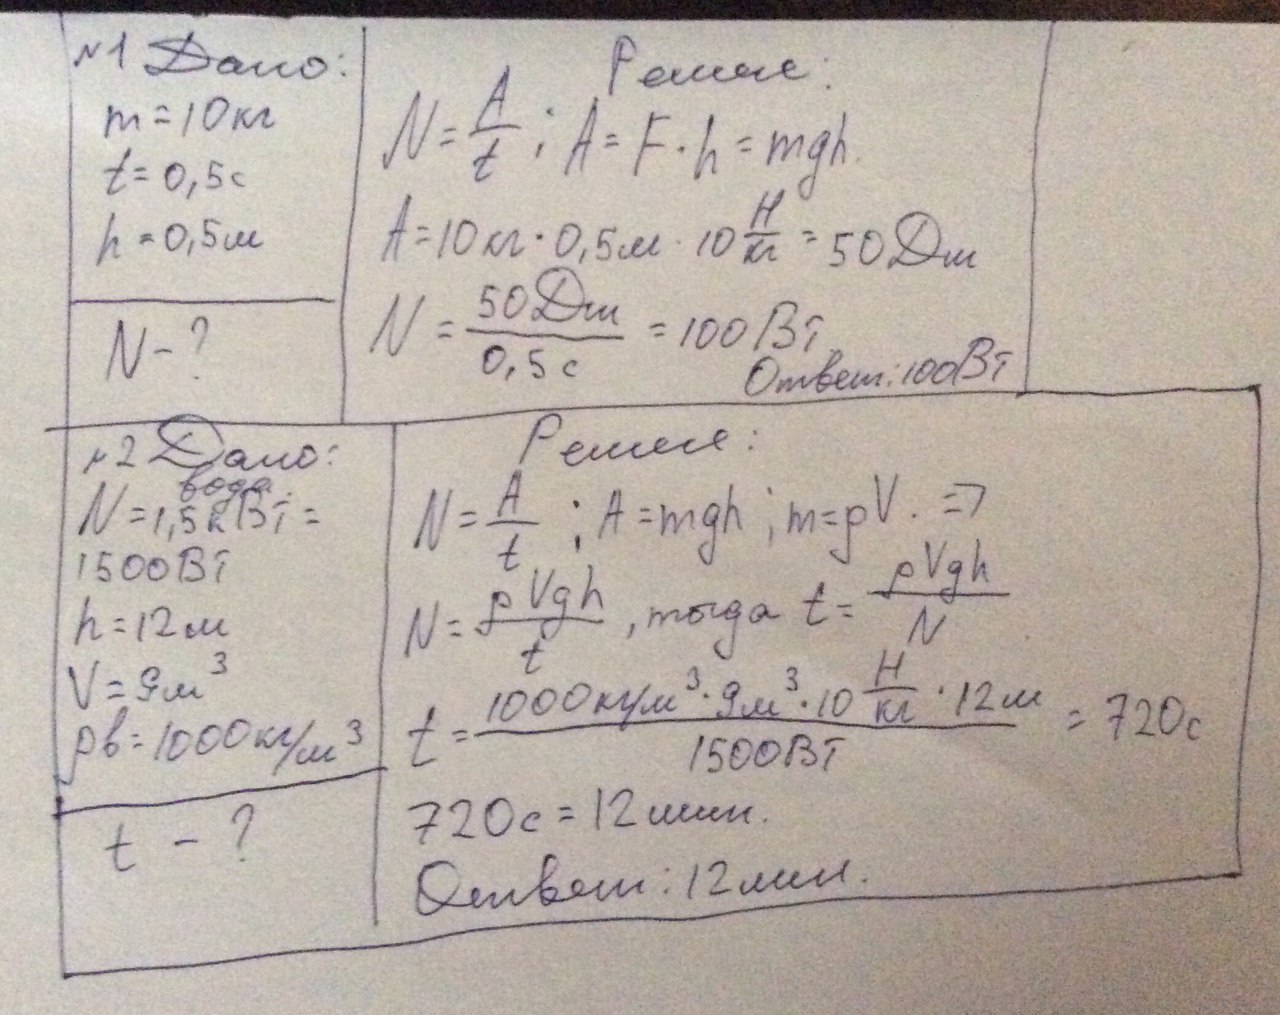 №1 Дано:
m=10кг
t=0,5с
h=0,5м
N-?
Решен:
N=A/t; A=F·h=mgh.
A=10кг·0,5м·10 Н/кг=50Дж
N=50Дж/0,5с=100Вт
Ответ:100Вт
№2 Дано:
вода.
N=1,5кВт=
1500Вт
h=12м
V=9м³
ρв=1000кг/м³
t-?
Решен:
N=A/t; A=mgh; m=ρV. =>
N=ρVgh/t, тогда t=ρVgh/N
t=1000кг/м³·9м³·10 Н/кг·12м/1500Вт=720с
720с=12мин.
Ответ: 12мин.